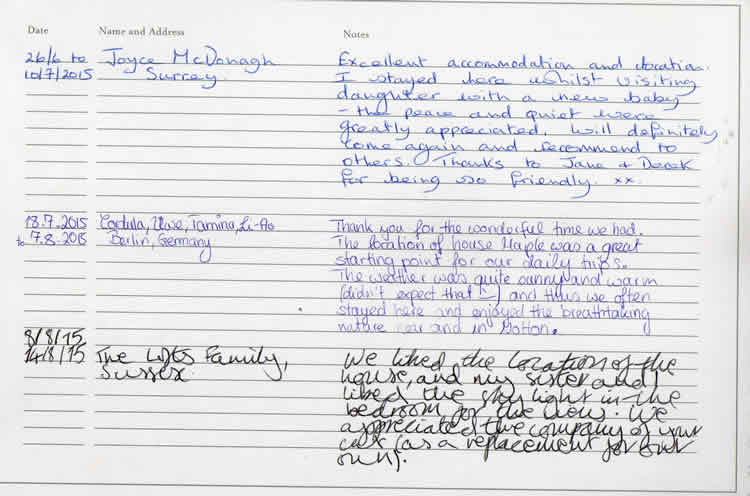 Date Name and Address Notes
26/6 to Joyce McDonagh Excellent accommodation and location.
10/7/2015 Surrey. I stayed here whilst visiting
daughter with a new baby
- the peace and quiet were
greatly appreciated. Will definitely
come again and recommend to
others. Thanks to Jane + Derek
for being so friendly. xx.
18.7.2015 Cordula, Uwe, Tamina, Li-Ao Thank you for the wonderful time we had.
to 7.8.2015 Berlin, Germany The location of house Maple was a great
starting point for our daily trips.
The weather was quite sunny and warm
(didn't expect that ) and thus we often
stayed here and enjoyed the breathtaking
nature near and in Botton.
8/8/15
14/8/15 The Family, We liked the location of the
Sussex house, and my sister and I
liked the sky light in the
bedroom for the view. We
appreciated the company of your
cat (as a replacement for our
own).